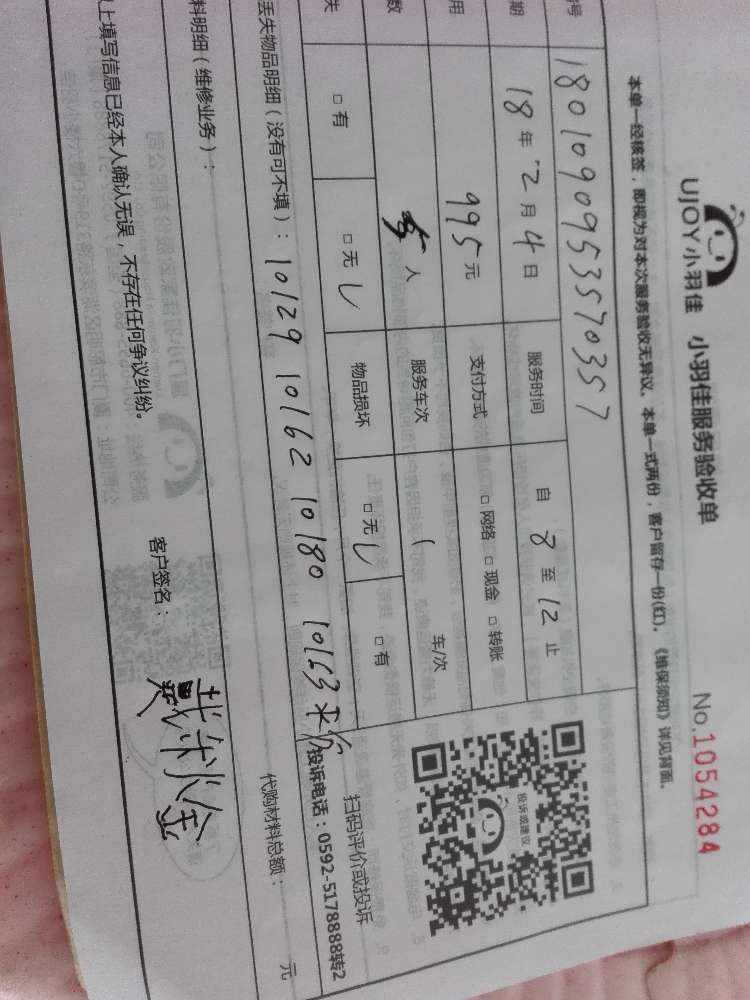 UJOY小羽佳 小羽佳服务验收单
No.1054284
本单一经核签，即视为对本次服务验收无异议。本单一式两份，客户留存一份(红)。《维保须知》详见背面。
号 18010909535 70357
期 18年 2月 4日 服务时间 自 8 至 12 止
用 995元 支付方式 □ 网络 □ 现金 □ 转账
数 人 服务车次 1 车/次
失 □ 有 □ 无 物品损坏 □ 无 □ 有
投诉或建议
扫码评价或投诉
投诉电话：0592-5178888转2
丢失物品明细（没有可不填）： 10129 10162 10180 10163
料明细（维修业务）： 代购材料总额： 元
上填写信息已经本人确认无误，不存在任何争议纠纷。 客户签名：